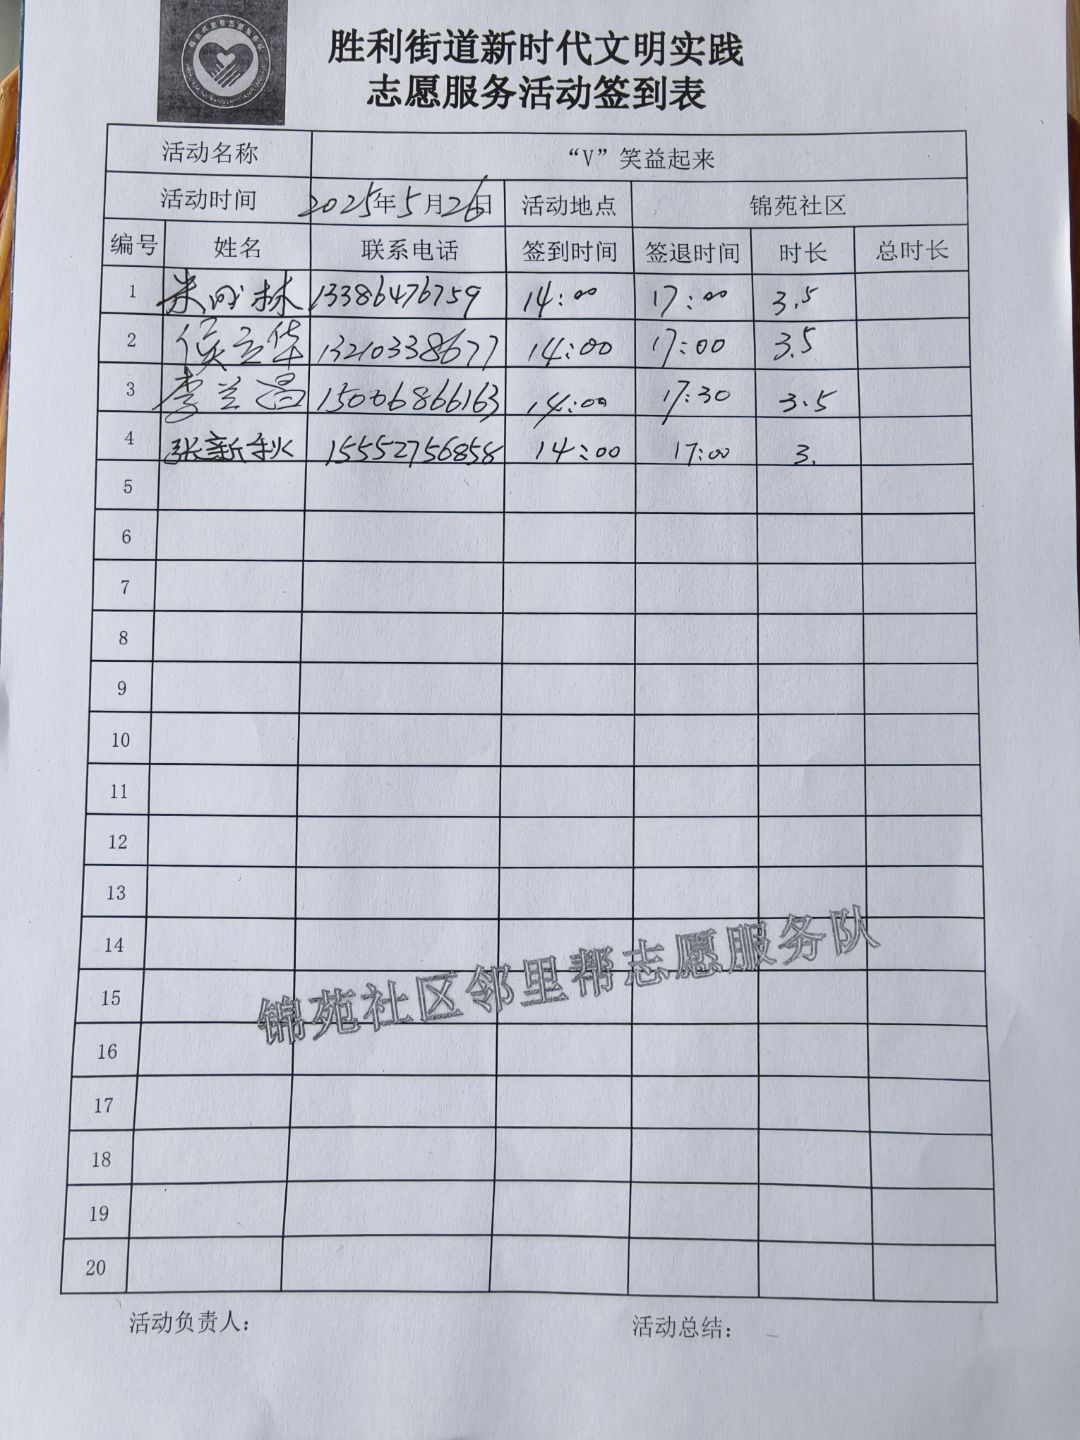 胜利街道新时代文明实践
志愿服务活动签到表
活动名称 “V”笑益起来
活动时间 2025年5月26日 活动地点 锦苑社区
编号 姓名 联系电话 签到时间 签退时间 时长 总时长
1 林 13386476759 14:00 17:00 3.5
2 侯立华 13210338677 14:00 17:00 3.5
3 李兰昌 15006866163 14:00 17:30 3.5
4 张新秋 15552756858 14:00 17:00 3.
5
6
7
8
9
10
11
12
13
14
15
16
17
18
19
20
锦苑社区邻里帮志愿服务队
活动负责人: 活动总结: